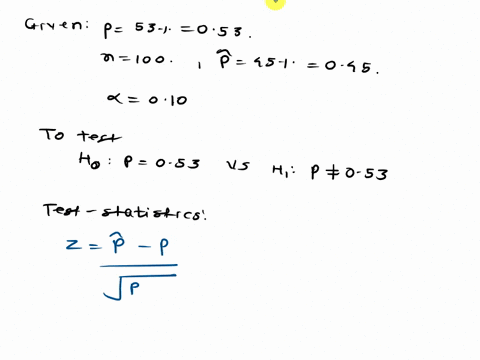 Given: p = 53% = 0.53.
n = 100. , p̂ = 45% = 0.45.
α = 0.10
To test
H₀ : P = 0.53 vs H₁ : P ≠ 0.53
Test-statistics:
Z = p̂ - p
√p